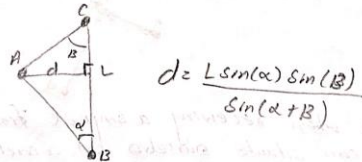 C
B
A
d
L
α
B
d = L sin(α) sin(B) / sin(α+B)